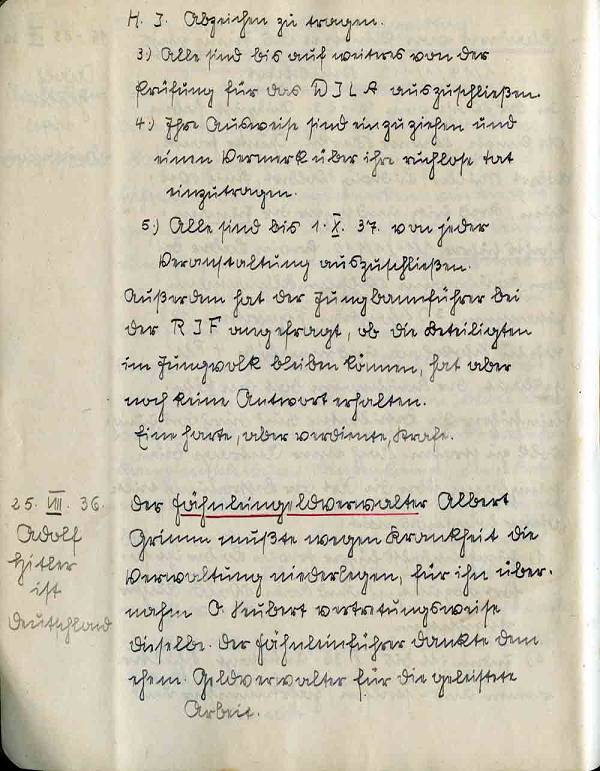 H. J. Abzeichen zu tragen.
3.) Alle sind bis auf weiteres von der
Prüfung für das D J L A auszuschließen.
4.) Ihre Ausweise sind einzuziehen und
einen Vermerk über ihre ruchlose Tat
einzutragen.
5.) Alle sind bis 1. X. 37. von jeder
Veranstaltung auszuschließen.
Außerdem hat der Jungbannführer bei
der R J F angefragt, ob die Beteiligten
im Jungvolk bleiben können, hat aber
noch keine Antwort erhalten.
Eine harte, aber verdiente, Strafe.
25. VIII. 36.
Adolf
Hitler
ist
Deutschland
Der Fähnleingeldverwalter Albert
Grimm mußte wegen Krankheit die
Verwaltung niederlegen, für ihn über-
nahm O Neubert vertretungsweise
dieselbe. Der Fähnleinführer dankte dem
ehem. Geldverwalter für die geleistete
Arbeit.